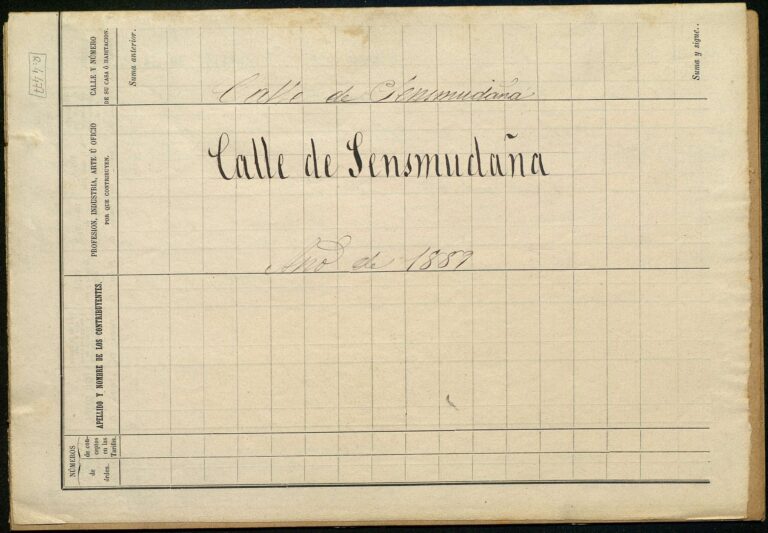 Calle de Sensmudaña
Calle de Sensmudaña
Año de 1889
Suma anterior.
Suma y sigue..
CALLE Y NÚMERO
DE SU CASA Ó HABITACION.
PROFESION, INDUSTRIA, ARTE Ú OFICIO
POR QUE CONTRIBUYEN.
APELLIDO Y NOMBRE DE LOS CONTRIBUYENTES.
NÚMEROS
de con-
ceptos
en las
Tarifas.
de
órden.